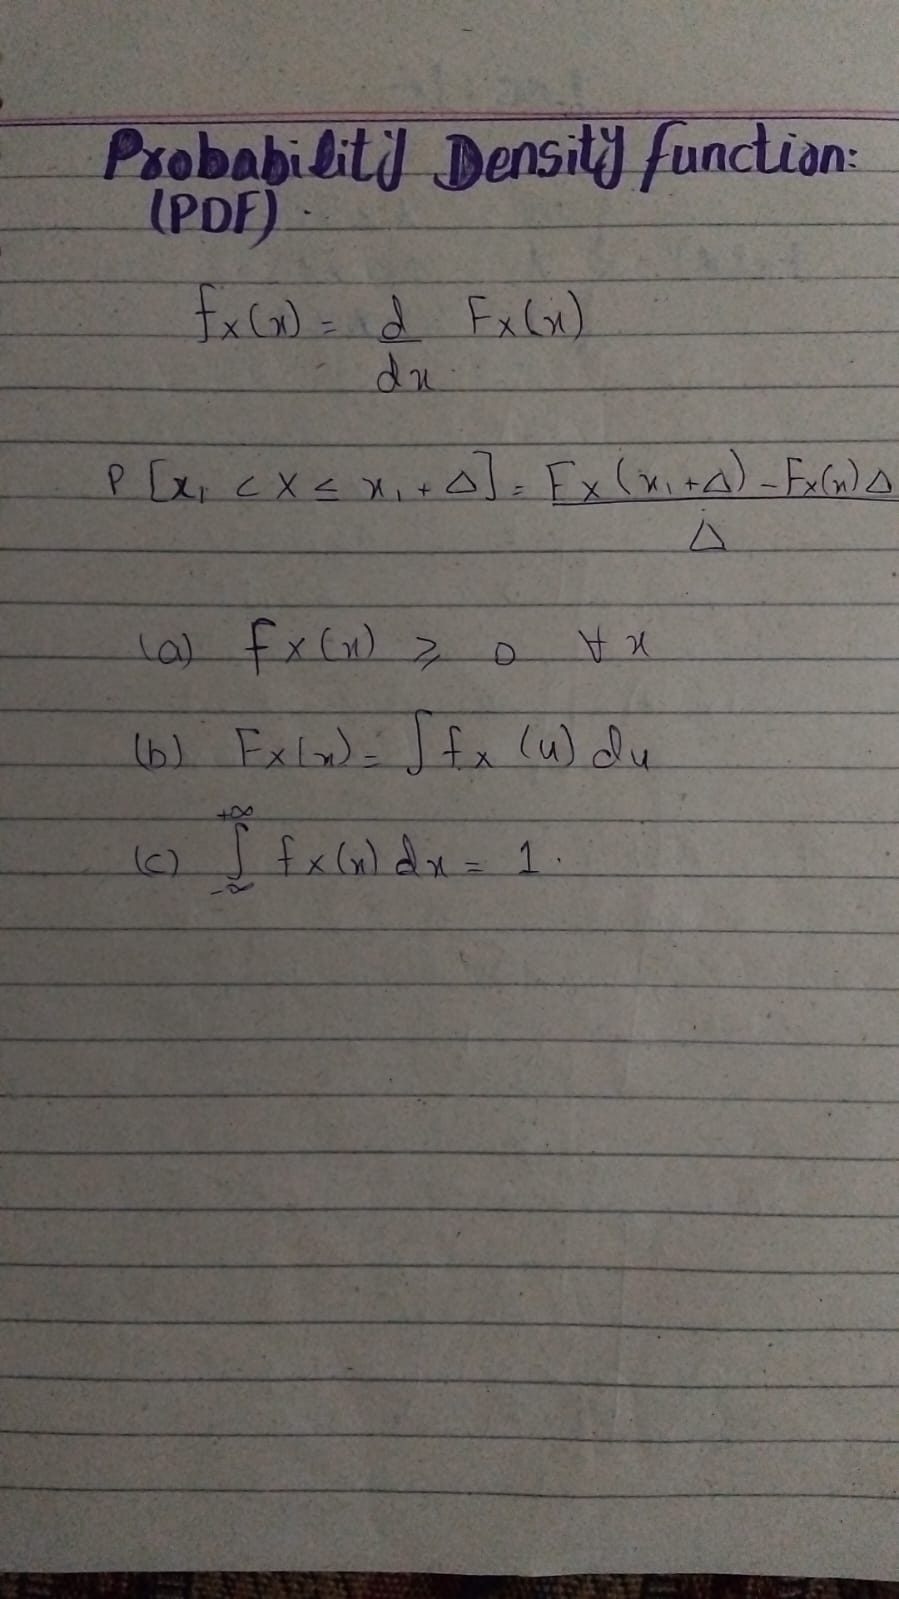 Probability Density function:
(PDF).
fx(x) = d/dx Fx(x)
P [x₁ < X ≤ x₁ + Δ] = Fx(x₁+Δ) - Fx(x)Δ / Δ
(a) fx(x) ≥ 0 ∀ x
(b) Fx(x) = ∫ fx (u) du
(c) ∫₋∞^+∞ fx(x) dx = 1.